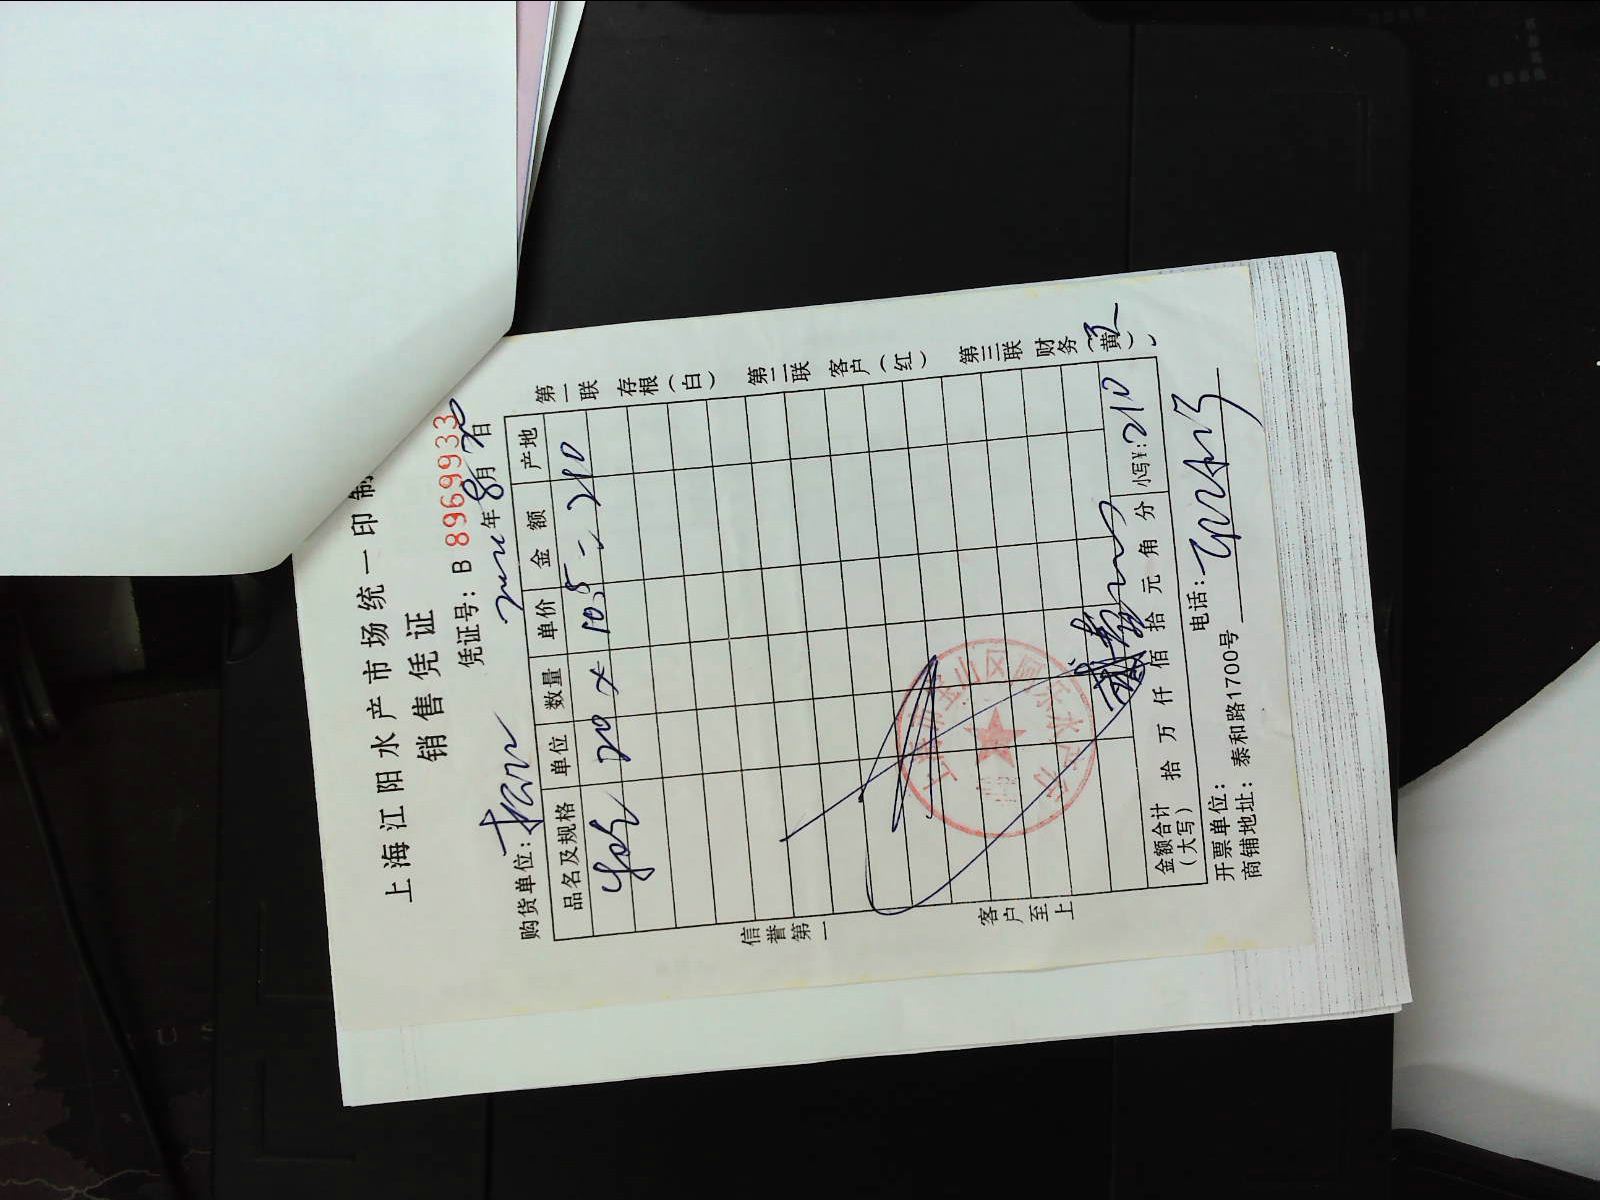 上海江阳水产市场统一印制
销售凭证
凭证号: B 8969933
购货单位: 年8月20日
品名及规格 单位 数量 单价 金额 产地
20 × 10.5 = 210
信誉第一
客户至上
第一联 存根（白） 第二联 客户（红） 第三联 财务（黄）
金额合计（大写） 拾 万 仟 佰 拾 元 角 分 小写¥: 210
开票单位: 电话:
商铺地址: 泰和路1700号